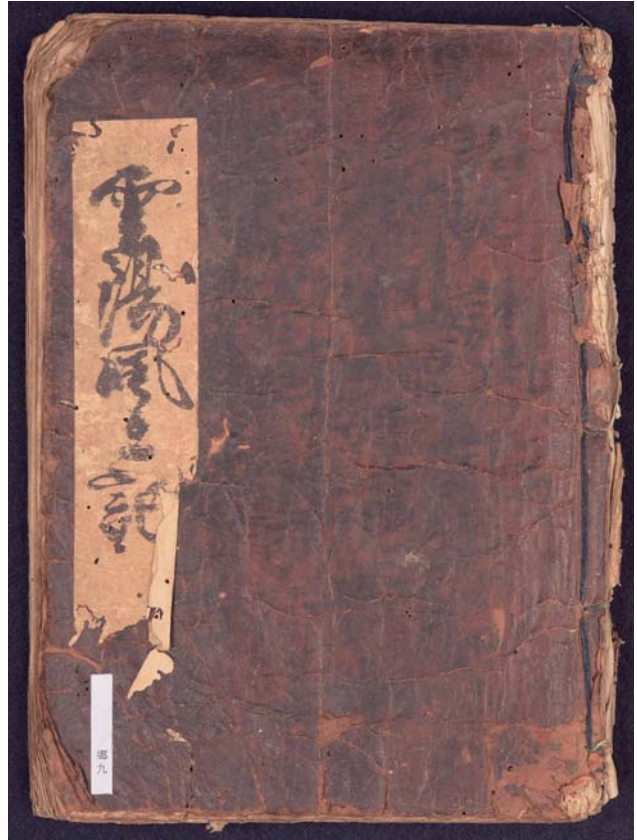 雲陽風土記
郷九